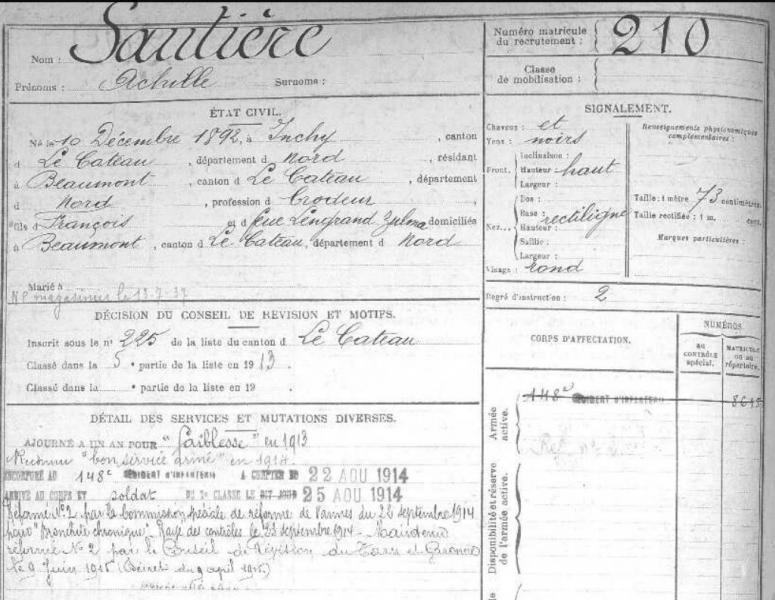 Nom : Sautière
Prénoms : Achille Surnoms :
Numéro matricule du recrutement : 210
Classe de mobilisation :
ÉTAT CIVIL.
Né le 10 Décembre 1892, à Inchy, canton
d Le Cateau, département d Nord, résidant
à Beaumont, canton d Le Cateau, département
d Nord, profession d Brodeur
fils d François et d feue Lengrand Zulma domiciliés
à Beaumont, canton d Le Cateau, département d Nord
Marié à
le 13-7-37
SIGNALEMENT.
Cheveux : et
Yeux : noirs
Front. Inclinaison :
Hauteur : haut
Largeur :
Nez... Dos :
Base : rectiligne
Hauteur :
Saillie :
Largeur :
Visage : rond
Renseignements physionomiques complémentaires :
Taille : 1 mètre 73 centimètres.
Taille rectifiée : 1 m. cent.
Marques particulières :
Degré d'instruction : 2
DÉCISION DU CONSEIL DE REVISION ET MOTIFS.
Inscrit sous le n° 225 de la liste du canton d Le Cateau
Classé dans la 5e partie de la liste en 1913.
Classé dans la e partie de la liste en 19 .
CORPS D'AFFECTATION.
NUMÉROS
AU CONTRÔLE SPÉCIAL.
MATRICULE OU AU RÉPERTOIRE.
Armée active.
148e RÉGIMENT D'INFANTERIE
Disponibilité et réserve de l'armée active.
DÉTAIL DES SERVICES ET MUTATIONS DIVERSES.
AJOURNÉ A UN AN POUR "faiblesse" en 1913
Reconnu "bon service armé" en 1914.
INCORPORÉ AU 148e RÉGIMENT D'INFANTERIE A COMPTER DU 22 AOU 1914
ARRIVÉ AU CORPS ET soldat DE 2e CLASSE LE DIT JOUR 25 AOU 1914
Réformé N° 2 par la Commission spéciale de réforme de Vannes du 22 septembre 1914
pour "Bronchite chronique". Rayé des contrôles le 23 septembre 1914 - Maintenu
réformé N° 2 par le Conseil de Révision du Tarn et Garonne
le 9 Juin 1915 (Décret du 9 avril 1915)